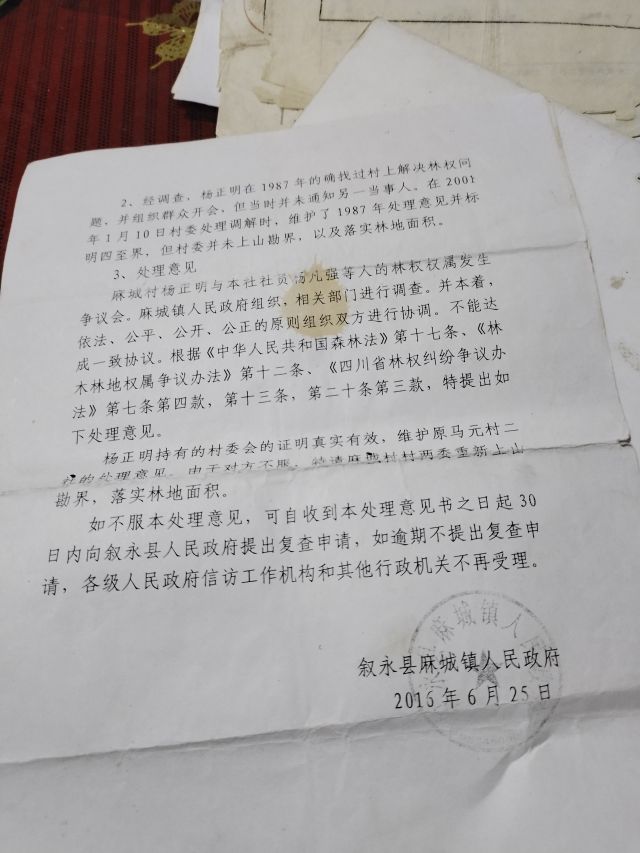 2、经调查，杨正明在1987年的确找过村上解决林权问
题，并组织群众开会，但当时并未通知另一当事人。在2001
年1月10日村委处理调解时，维护了1987年处理意见并标
明四至界，但村委并未上山勘界，以及落实林地面积。
3、处理意见
麻城村杨正明与本社社员杨凡强等人的林权权属发生
争议会。麻城镇人民政府组织，相关部门进行调查。并本着，
依法、公平、公开、公正的原则组织双方进行协调。不能达
成一致协议。根据《中华人民共和国森林法》第十七条、《林
木林地权属争议办法》第十二条、《四川省林权纠纷争议办
法》第七条第四款，第十三条，第二十条第三款，特提出如
下处理意见。
杨正明持有的村委会的证明真实有效，维护原马元村二
的处理意见。由于对方不服，特请麻城村村两委重新上山
勘界，落实林地面积。
如不服本处理意见，可自收到本处理意见书之日起30
日内向叙永县人民政府提出复查申请，如逾期不提出复查申
请，各级人民政府信访工作机构和其他行政机关不再受理。
叙永县麻城镇人民政府
2016年6月25日